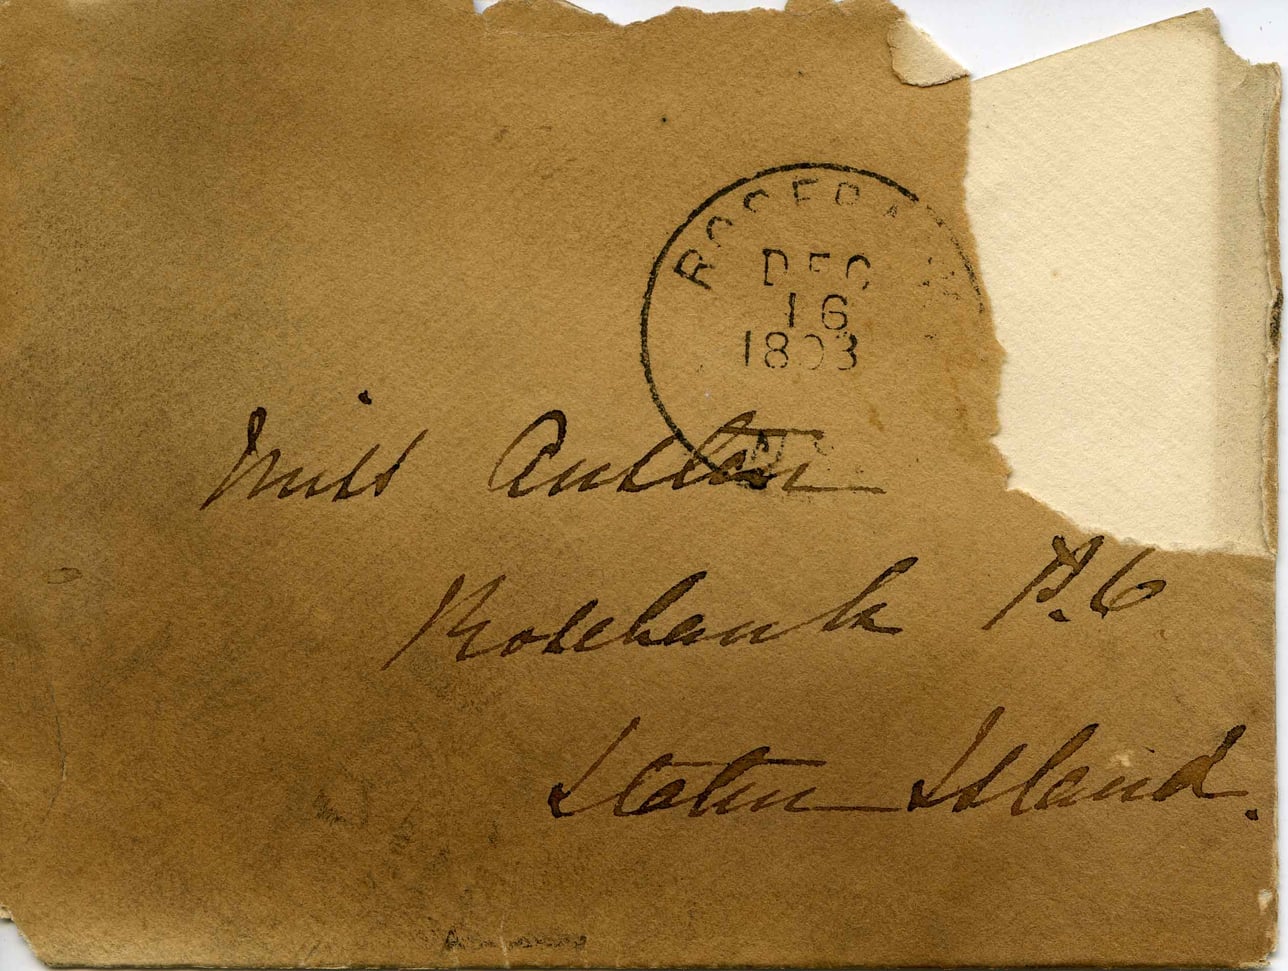 ROSEBANK
DEC
16
1893
N.Y.
Miss Austen
Rosebank P.O
Staten Island.